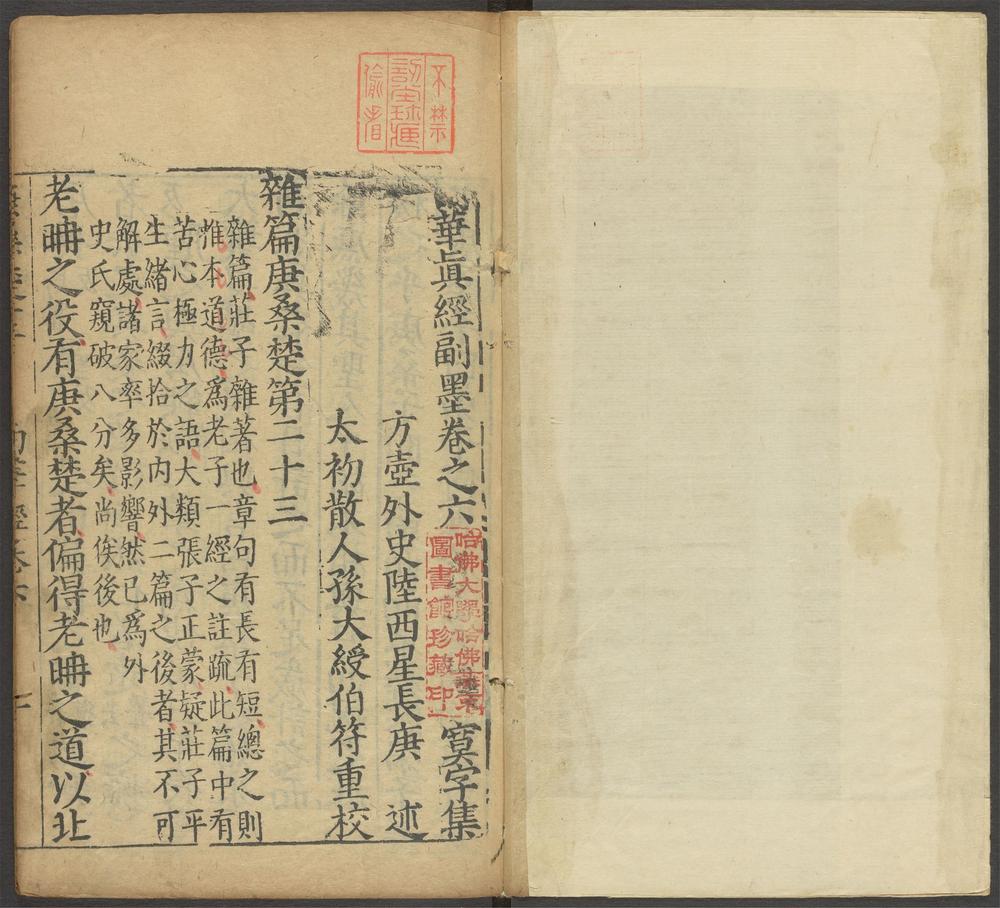 華眞經副墨卷之六 寞字集
方壺外史陸西星長庚 述
太初散人孫大綬伯符重校
雜篇庚桑楚第二十三
雜篇莊子雜著也章句有長有短總之則
惟本道德爲老子一經之註疏此篇中有
苦心極力之語大類張子正蒙疑莊子平
生緒言綴拾於內外二篇之後者其不可
解處諸家率多影響然已爲外
史氏窺破八分矣尚俟後也
老聃之役有庚桑楚者偏得老聃之道以北
哈佛大學哈佛燕京
圖書館珍藏印